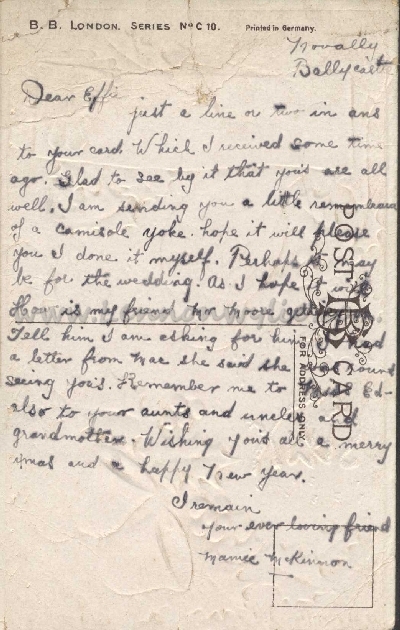 B. B. LONDON. SERIES No C 10. Printed in Germany.
Novally
Ballycastle
Dear Effie
just a line or two in ans
to your card Which I received some time
ago. Glad to see by it that yois are all
well. I am sending you a little remembrance
of a camisole yoke. hope it will please
you I done it myself. Perhaps it may
be for the wedding. As I hope it will
How is my friend Mr Moore
Tell him I am asking for him had
a letter from Mac she said she
seeing yois. Remember me to Ed-
also to your aunts and uncles and
grandmother. Wishing yois all a merry
xmas and a happy New Year.
I remain
your ever loving friend
Mamie McKinnon
POST CARD
FOR ADDRESS ONLY.